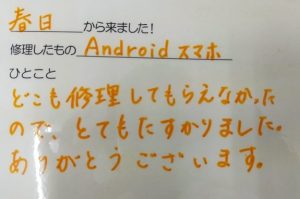 春日から来ました!
修理したもの Androidスマホ
ひとこと
どこも修理してもらえなかった
ので、とてもたすかりました。
ありがとうございます。